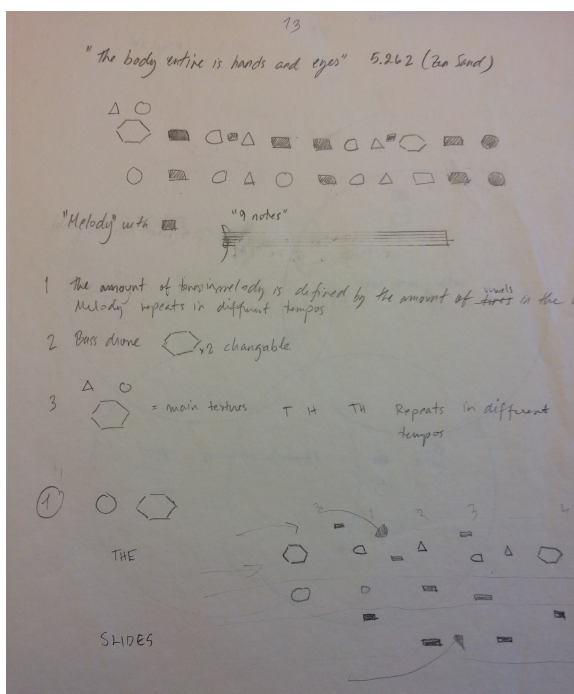 13
"The body entire is hands and eyes" 5.262 (Zen Sand)
"Melody" with
"9 notes"
1 The amount of tones in melody is defined by the amount of vowels in the
Melody repeats in different tempos
2 Bass drone x2 changable
3 = main textures T H TH Repeats in different
tempos
1
2 1 2 3 4
THE
SLIDES